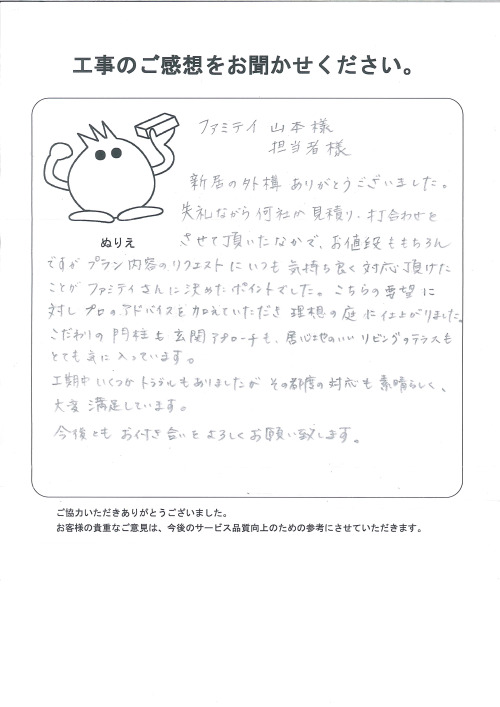 工事のご感想をお聞かせください。
ファミテイ 山本様
担当者様
新居の外構 ありがとうございました。
失礼ながら何社か見積り、打合わせを
ぬりえ
させて頂いたなかで、お値段ももちろん
ですが プラン内容のリクエストにいつも気持ち良く対応頂けた
ことが ファミテイさんに決めたポイントでした。こちらの要望に
対し プロのアドバイスを加えていただき 理想の庭に仕上がりました。
こだわりの門柱も玄関アプローチも、居心地のいいリビングのテラスも
とても気に入っています。
工期中 いくつか トラブルもありましたが その都度の対応も素晴らしく、
大変 満足しています。
今後とも お付き合いを よろしくお願い致します。
ご協力いただきありがとうございました。
お客様の貴重なご意見は、今後のサービス品質向上のための参考にさせていただきます。